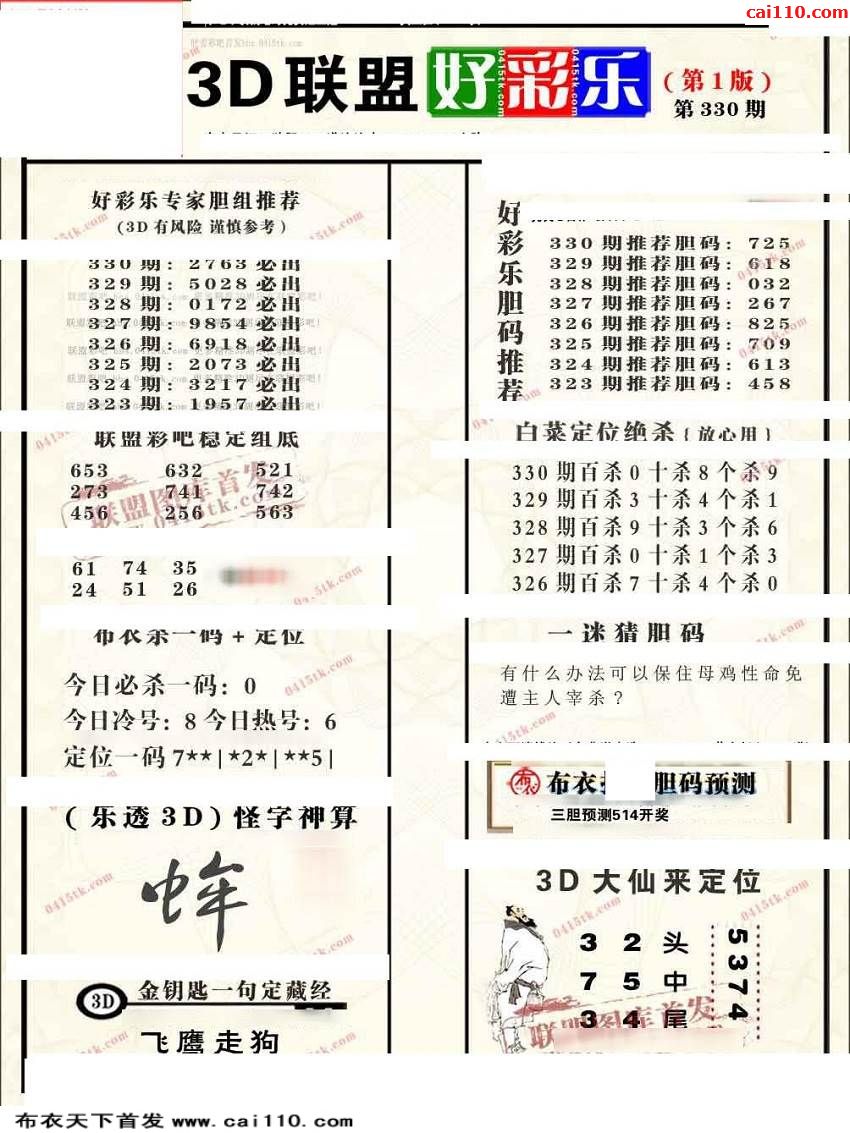 cai110.com
3D联盟好彩乐
0415tk.com
0415tk.com
0415tk.com
(第1版)
第330期
好彩乐专家胆组推荐
(3D有风险 谨慎参考)
330期: 2763必出
329期: 5028必出
328期: 0172必出
327期: 9854必出
326期: 6918必出
325期: 2073必出
324期: 3217必出
323期: 1957必出
联盟彩吧稳定组底
653 632 521
273 741 742
456 256 563
联盟图库首发
61 74 35
24 51 26
布衣杀一码+定位
今日必杀一码: 0
今日冷号: 8 今日热号: 6
定位一码 7**|*2*|**5|
(乐透3D)怪字神算
3D
金钥匙一句定藏经
飞鹰走狗
好彩乐胆码推荐
330期推荐胆码: 725
329期推荐胆码: 618
328期推荐胆码: 032
327期推荐胆码: 267
326期推荐胆码: 825
325期推荐胆码: 709
324期推荐胆码: 613
323期推荐胆码: 458
白菜定位绝杀{放心用}
330期百杀0十杀8个杀9
329期百杀3十杀4个杀1
328期百杀9十杀3个杀6
327期百杀0十杀1个杀3
326期百杀7十杀4个杀0
一迷猜胆码
有什么办法可以保住母鸡性命免
遭主人宰杀?
布衣
胆码预测
三胆预测514开奖
3D大仙来定位
3 2 头
7 5 中
3 4 尾
5374
联盟图库首发
布衣天下首发 www.cai110.com